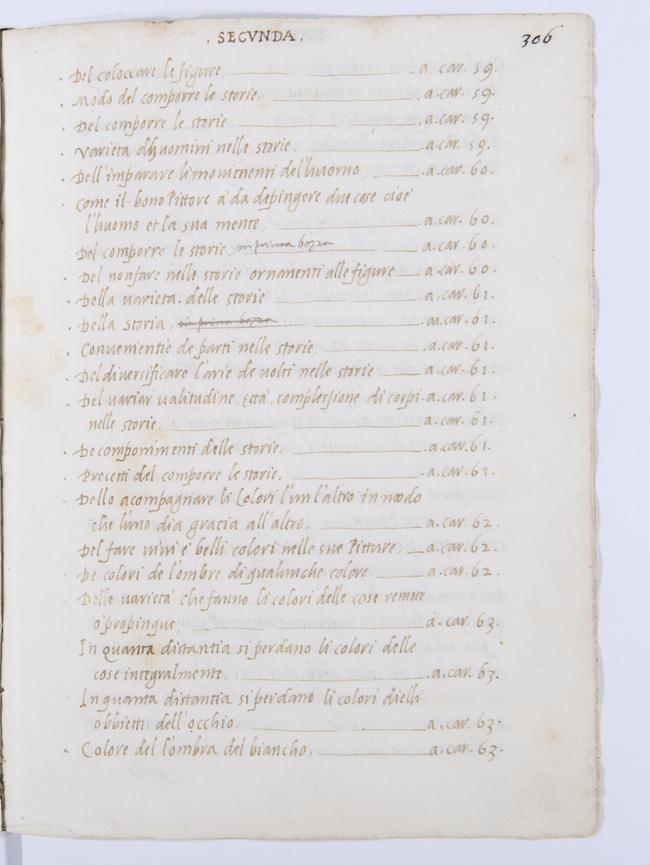 . SECVNDA .
306
. Del coloccare le figure a. car. 59.
. Modo del comporre le storie. a. car. 59.
. Del comporre le storie a. car. 59.
. Varieta d'huomini nelle storie. a. car. 59.
. Dell'imparare li movimenti del'huomo a. car. 60.
. Come il bono Pittore a' da depingere due cose cioe'
l'huomo et la sua mente. a. car. 60.
. Del comporre le storie, in prima bozza a. car. 60.
. Del nonfare nelle storie ornamenti alle figure a. car. 60.
. Della varieta. delle storie a. car. 61.
. Della storia, in prima bozza a. car. 61.
. Convenientie de parti nelle storie. a. car. 61.
. Del diversificare l'arie de volti nelle storie a. car. 61.
. Del variar valitudine, età, complessione di corpi a. car. 61.
nelle storie. a. car. 61.
. De componimenti delle storie. a. car. 61.
. Precetti del comporre le storie. a. car. 61.
. Dello acompagnare li Colori l'un l'altro in modo
che l'uno dia gracia all'altro. a. car. 62.
. Del fare vivi e' belli colori nelle sue Pitture. a. car. 62.
. De colori de l'ombre di qualunche colore a. car. 62.
. Delle varieta che fanno li colori delle cose remote
o' propinque. a. car. 63.
In quanta distantia si perdano li colori delle
cose integralmente a. car. 63.
. In quanta distantia si perdano li colori dielli
obbietti dell'occhio a. car. 63.
. Colore del l'ombra del biancho. a. car. 63.